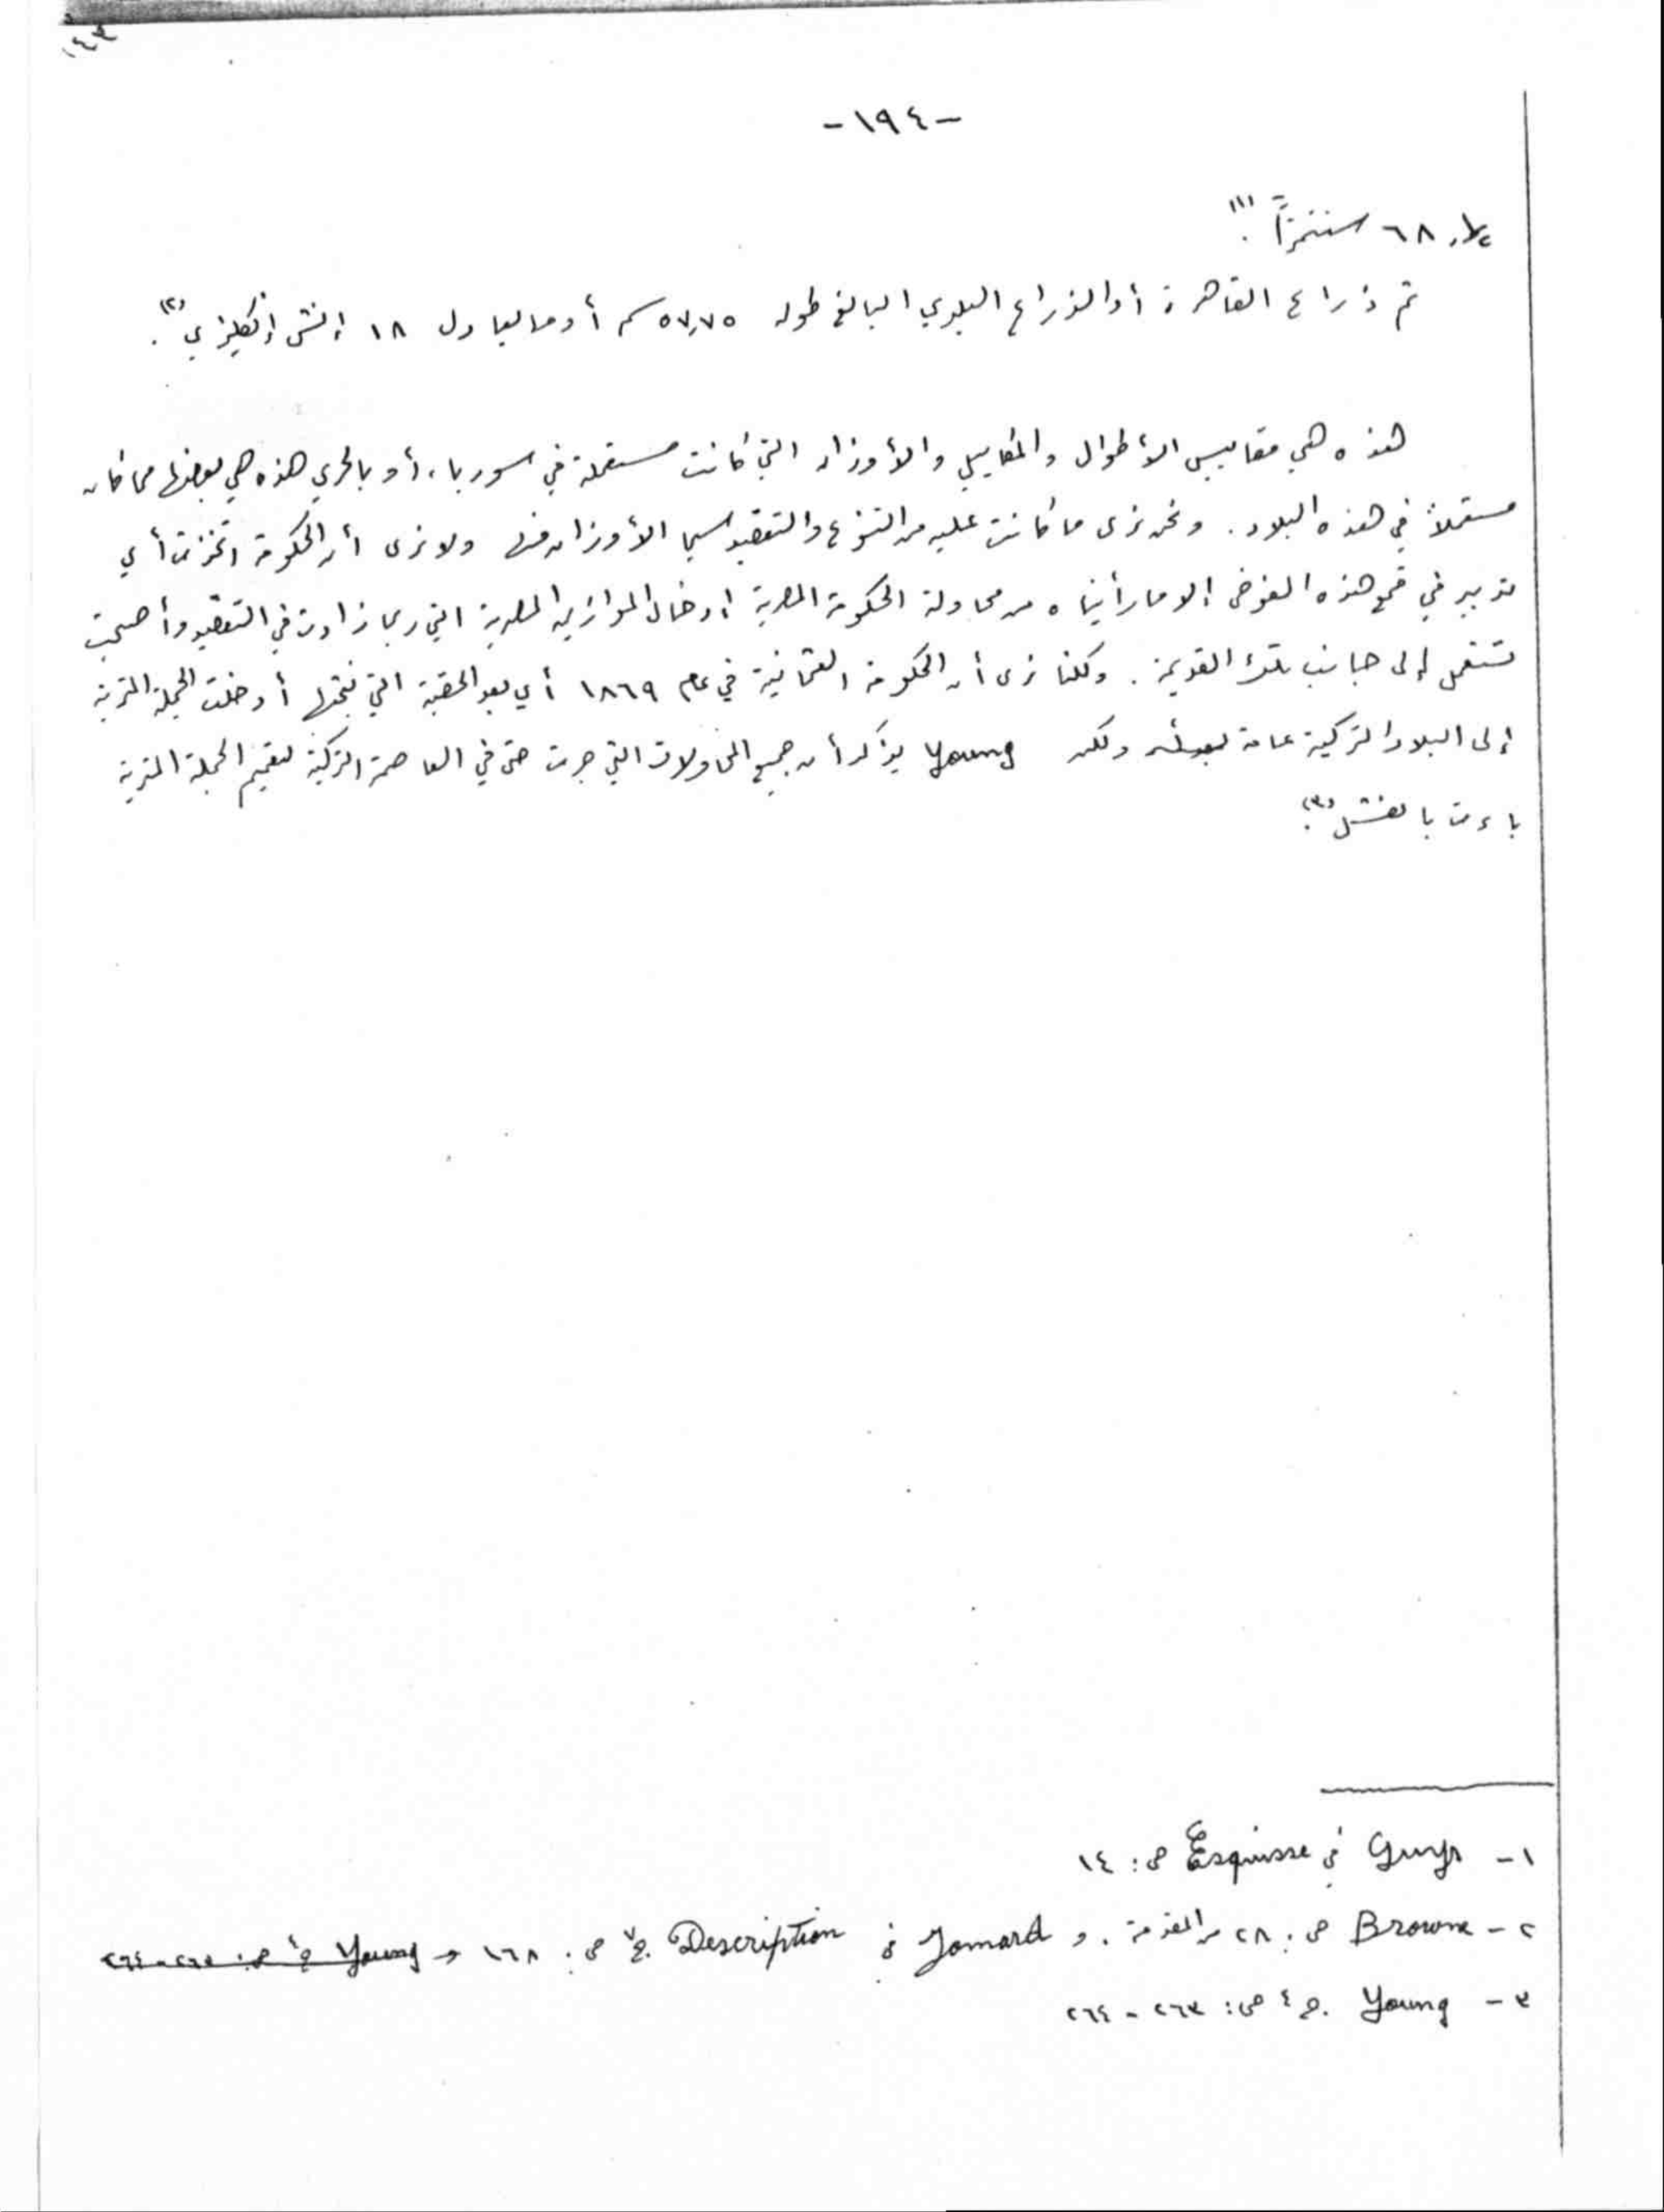 ١٤٣
-١٩٤-
٦٨,١/٢ سنتمتراً (١).
ثم ذراع القاهرة أو الذراع البلدي البالغ طوله ٥٧,٧٥ سم أو ما يعادل ١٨ إنش إنكليزي (٢).
هذه هي مقاييس الأطوال والمكاييل والأوزان التي كانت مستعملة في سوريا، أو بالحري هذه هي بعضها مما كان
مستعملاً في هذه البلاد. ونحن نرى ما كانت عليه من التنوع والتعقيد سيما الأوزان منها ولا نرى أن الحكومة اتخذت أي
تدبير في قمع هذه الفوضى إلا ما رأيناه من محاولة الحكومة المصرية إدخال الموازين المصرية التي ربما زادت في التعقيد وأصبحت
تستعمل إلى جانب تلك القديمة. ولكننا نرى أن الحكومة العثمانية في عام ١٨٦٩ أي بعد الحقبة التي نبحثها أدخلت الجملة المترية
إلى البلاد التركية عامة ولكن Young يؤكد أن جميع المحاولات التي جرت حتى في العاصمة التركية لتعميم الجملة المترية
باءت بالفشل (٣).
١- Guys في Esquisse ص: ١٤
٢- Browne ص: ٢٨ من المقدمة. و Jomard في Description ج ٧ ص: ١٦٨ و Young ج ٤ ص: ٢٦٣-٢٦٤
٣- Young ج ٤ ص: ٢٦٣-٢٦٤